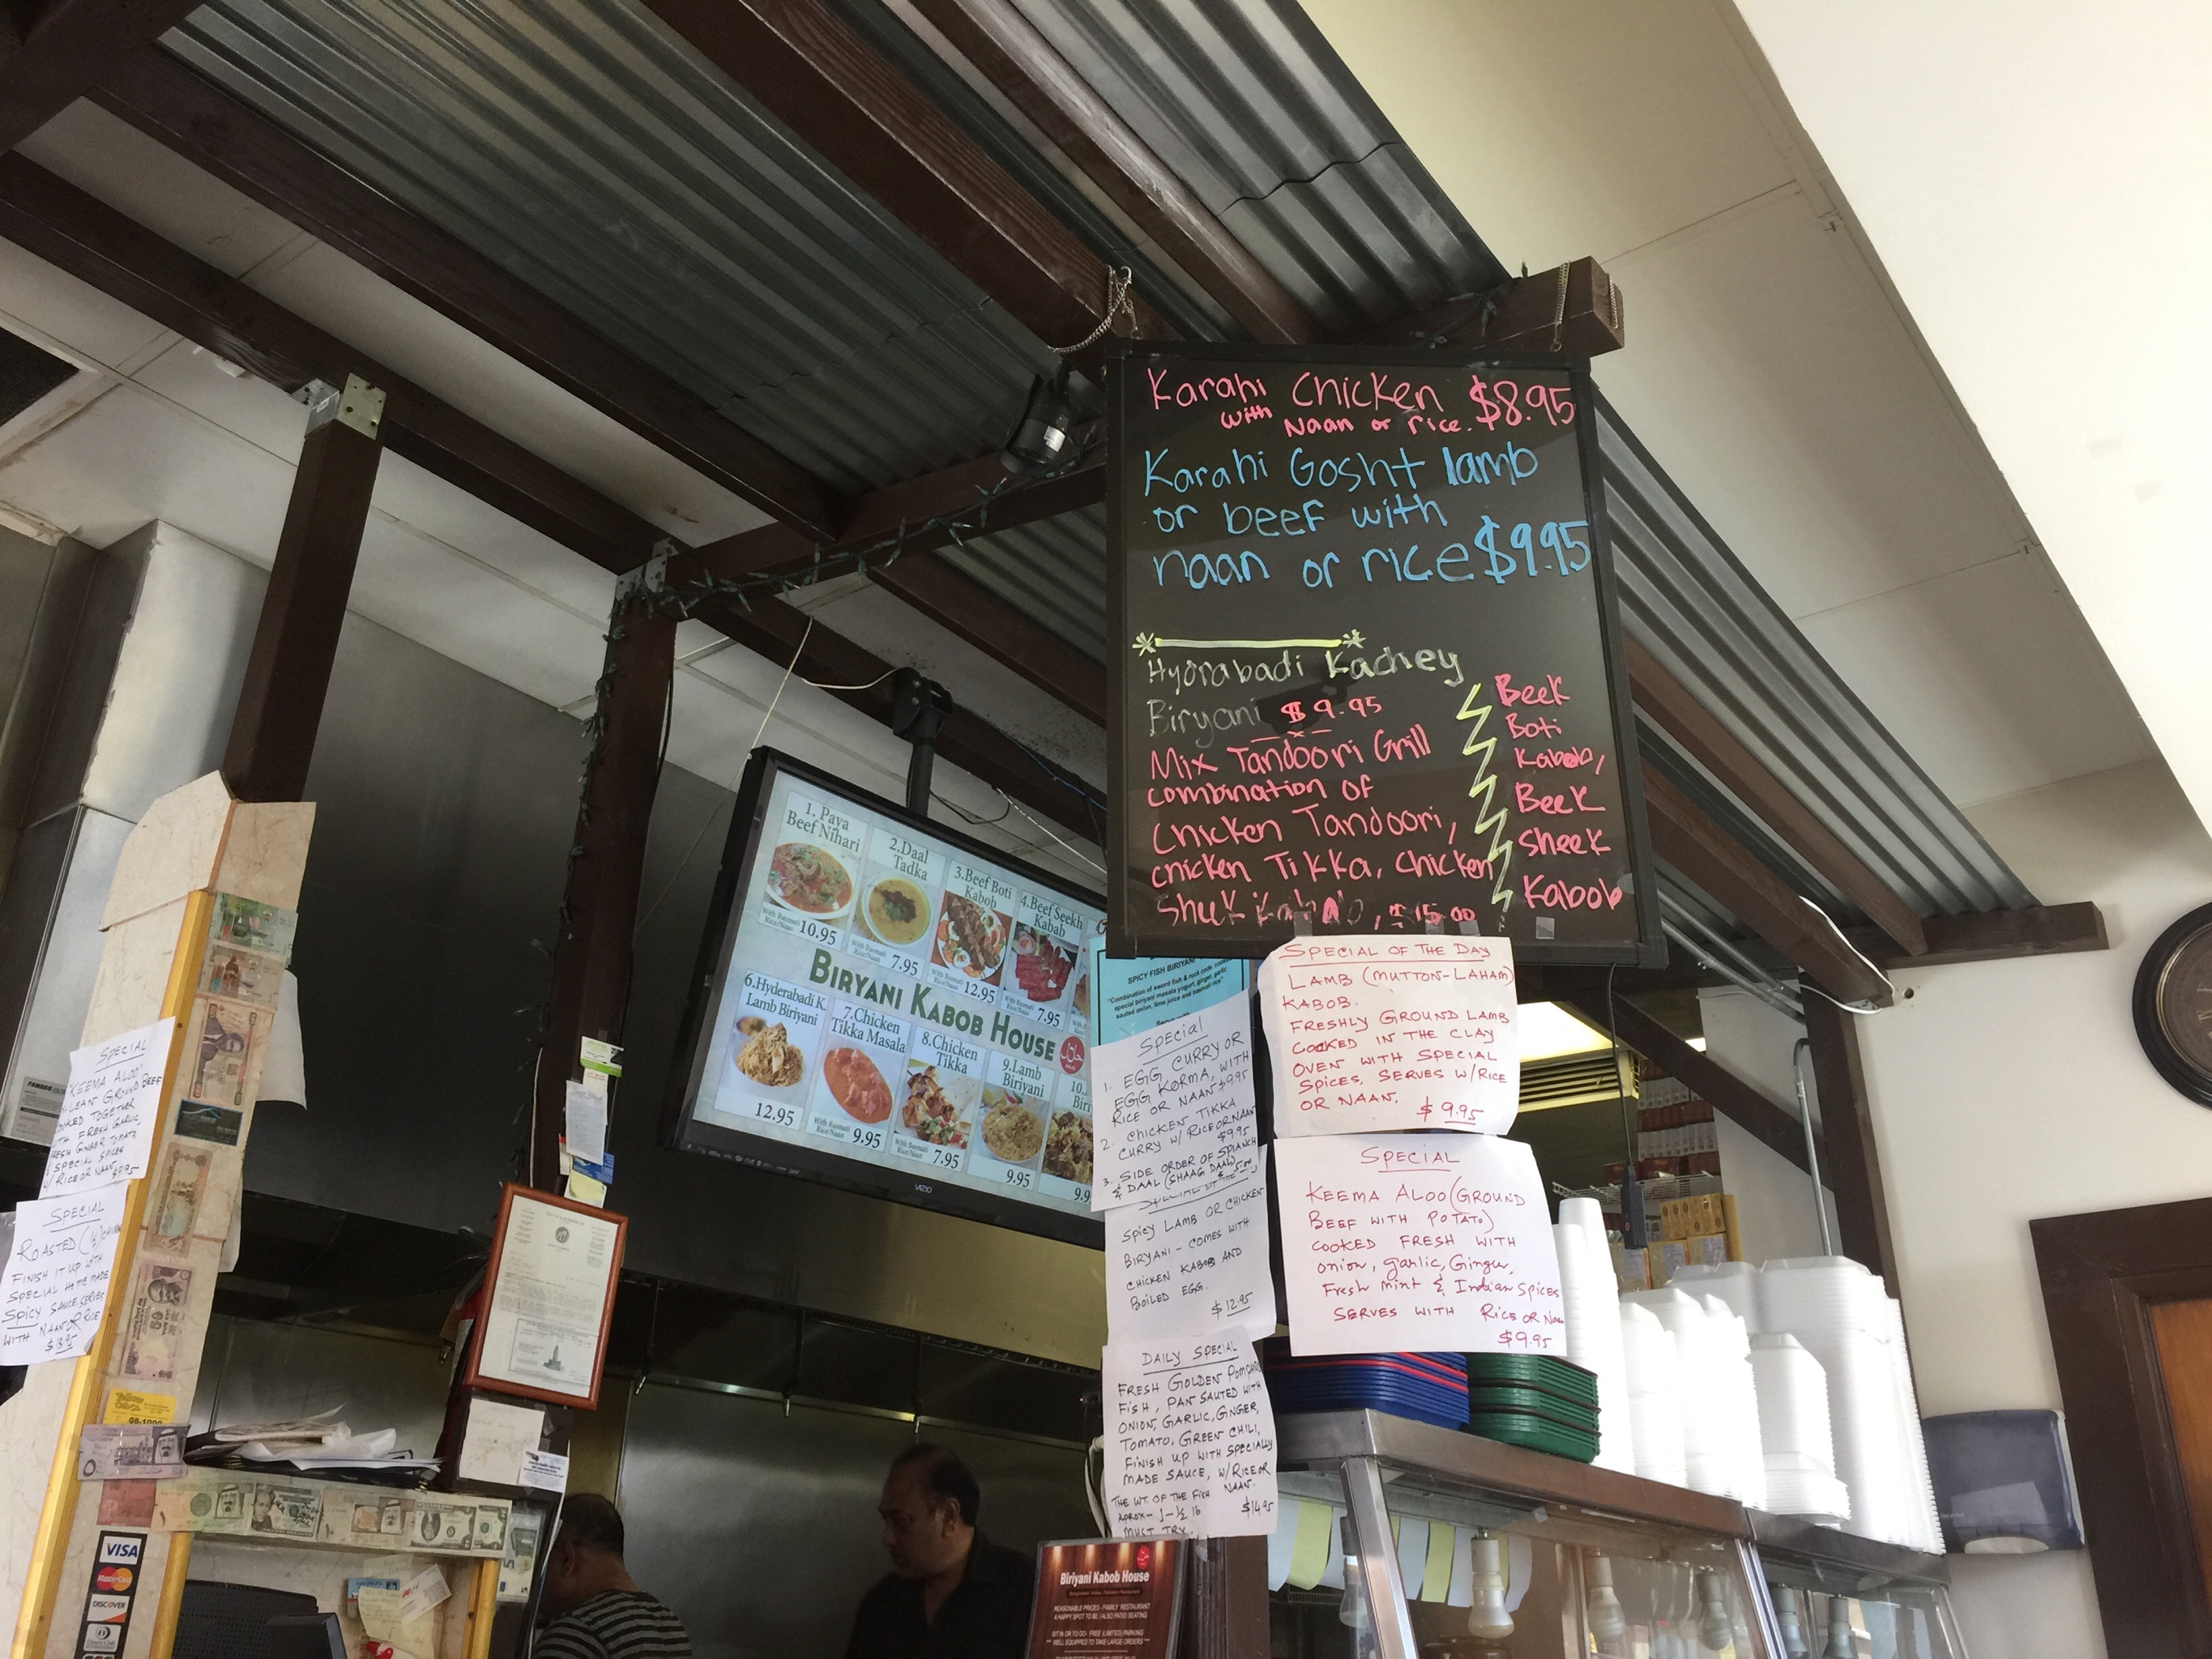 Karahi Chicken $8.95
with Naan or rice.
Karahi Gosht lamb
or beef with
naan or rice $9.95
Hydrabadi Kachey
Biryani $9.95
Mix Tandoori Grill
combination of
Chicken Tandoori,
chicken Tikka, Chicken
Sheek Kabab, $15.00
Beek
Boti
Kabob,
Beek
Sheek
Kabob
1. Paya
Beef Nihari
With Basmati
Rice/Naan 10.95
2.Daal
Tadka
With Basmati
Rice/Naan 7.95
3.Beef Boti
Kabob
With Basmati
Rice/Naan 12.95
4.Beef Seekh
Kabab
With Basmati
Rice/Naan 7.95
BIRYANI KABOB HOUSE
حلال
6.Hyderabadi K.
Lamb Biriyani
12.95
7.Chicken
Tikka Masala
With Basmati
Rice/Naan 9.95
8.Chicken
Tikka
With Basmati
Rice/Naan 7.95
9.Lamb
Biriyani
9.95
10.
Biri
9.9
VIZIO
SPICY FISH BIRIYANI
"Combination of sword fish & rock code cooked
special biriyani masala yogurt, ginger, garlic
sauted onion, lime juice and basmati rice"
SPECIAL OF THE DAY
LAMB (MUTTON-LAHAM)
KABOB.
FRESHLY GROUND LAMB
COOKED IN THE CLAY
OVEN WITH SPECIAL
SPICES, SERVES W/RICE
OR NAAN.
$9.95
SPECIAL
1. EGG CURRY OR
EGG KORMA, WITH
RICE OR NAAN $9.95
2. CHICKEN TIKKA
CURRY W/ RICE OR NAAN
$9.95
3. SIDE ORDER OF SPIANCH
& DAAL (SHAAG DAAL) $5.00
SPICY LAMB OR CHICKEN
BIRYANI - COMES WITH
CHICKEN KABOB AND
BOILED EGG.
$12.95
SPECIAL
KEEMA ALOO (GROUND
BEEF WITH POTATO)
COOKED FRESH WITH
onion, garlic, Ginger,
Fresh mint & Indian Spices
SERVES WITH RICE OR Naan
$9.95
DAILY SPECIAL
FRESH GOLDEN POMPANO
FISH, PAN SAUTED WITH
ONION, GARLIC, GINGER,
TOMATO, GREEN CHILI,
FINISH UP WITH SPECIALLY
MADE SAUCE, W/RICE OR
NAAN.
THE WT. OF THE FISH
APROX - 1-½ lb $14.95
MUST TRY.
Biriyani Kabob House
Bangladeshi, Indian, Pakistani Restaurant
REASONABLE PRICES - FAMILY RESTAURANT
A HAPPY SPOT TO BE (ALSO PATIO SEATING
SIT IN OR TO GO- FREE (LIMITED) PARKING
** WELL EQUIPPED TO TAKE LARGE ORDERS **
SPECIAL
"KEEMA ALOO"
LEAN GROUND BEEF
COOKED TOGETHER
WITH FRESH GARLIC,
FRESH GINGER TOMATO,
& SPECIAL SPICES
W/RICE OR NAAN $9.95
SPECIAL
ROASTED (½)
FINISH IT UP WITH
SPECIAL HOME MADE
SPICY SAUCE. SERVES
WITH NAAN OR RICE
$13.95
Yellow
Cabs
VISA
MasterCard
DISCOVER
Diners Club